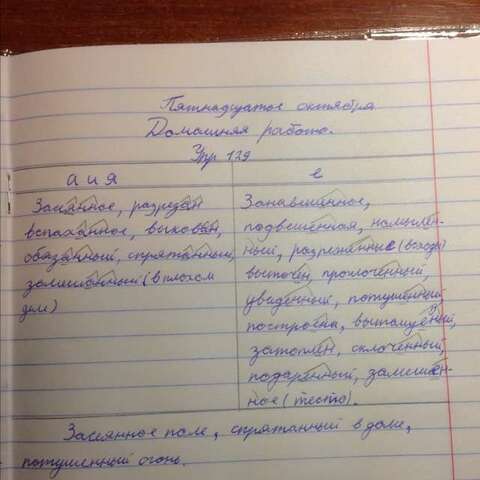 Пятнадцатое октября.
Домашняя работа.
Упр 129
а и я
е
Засеянное, разрезан
вспаханное, выкован,
обязанный, спрятанный,
замешанный (в плохом
деле)
Занавешенное,
подвешенная, намылен-
ный, разреженные (всходы)
выточен, проточенный,
увиденный, потушенный
построена, вытащенный,
затоплен, склоченный,
подаренный, замешен-
ное (тесто).
Засеянное поле, спрятанный в доме,
потушенный огонь.